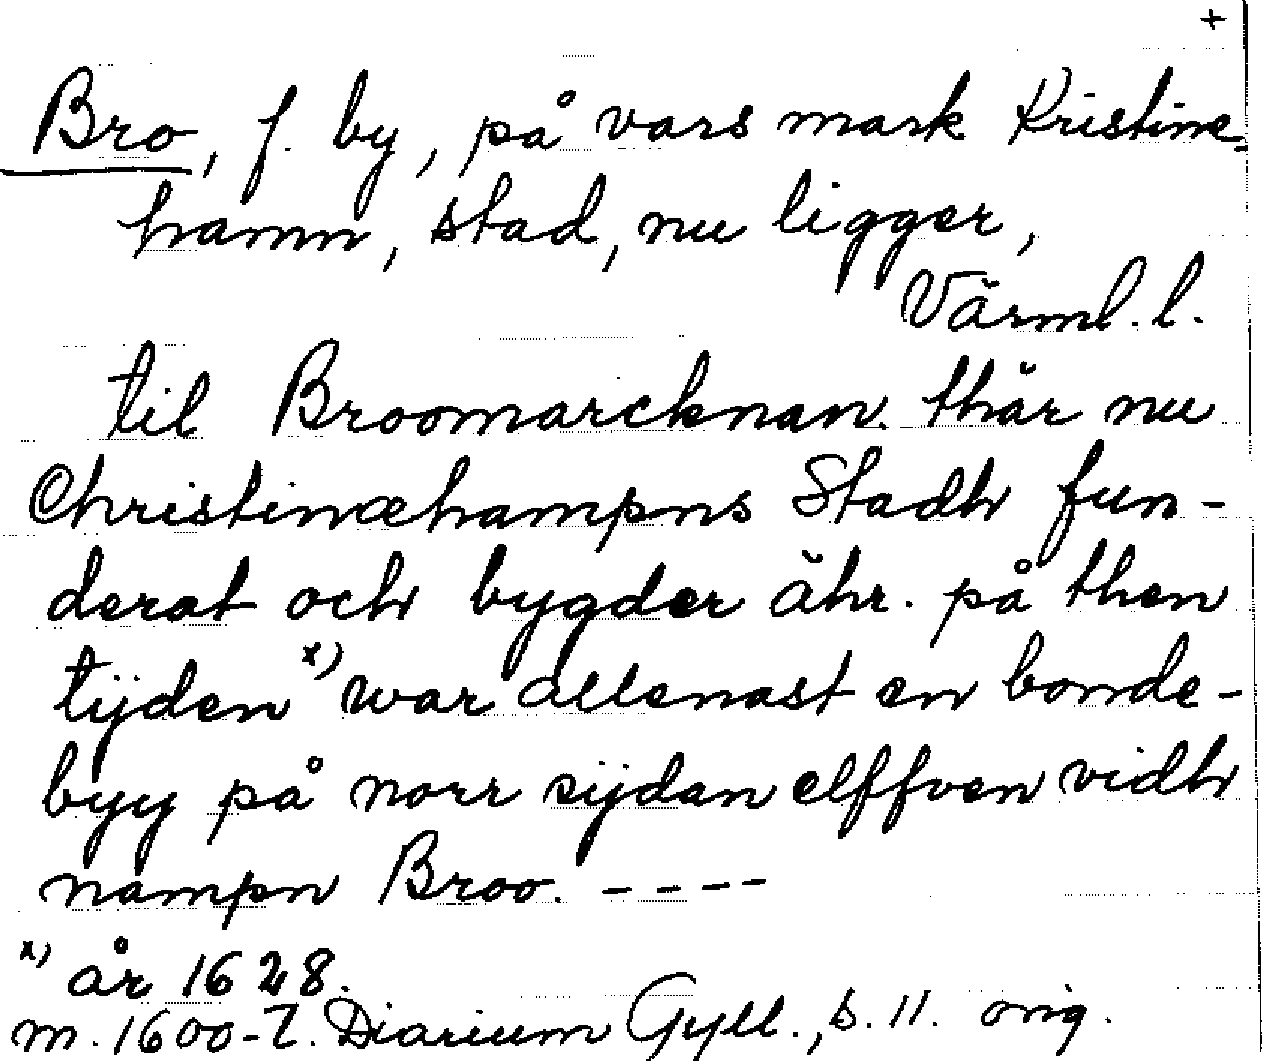 +
Bro, f. by, på vars mark Kristine-
hamn, stad, nu ligger,
Värml. l.
til Broomarcknan. thär nu
Christinæhampns Stadh fun-
derat och bygder ähr. på then
tijden x) war allenast en bonde-
byy på norr sijdan elffven vidh
nampn Broo. ----
x) år 1628.
m. 1600-t. Diarium Gyll., s. 11. orig.